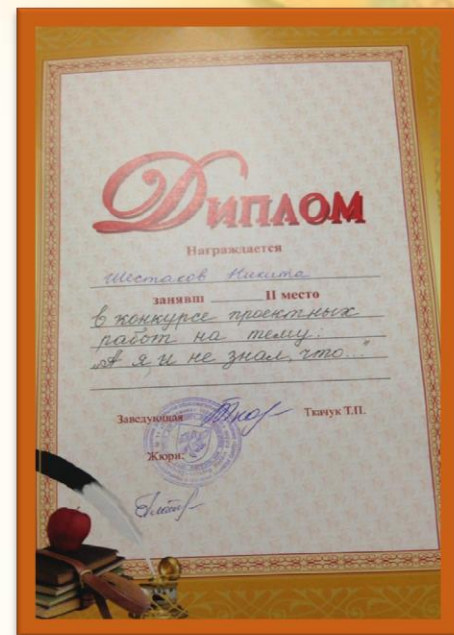 Диплом
Награждается
Шестаков Никита
занявш II место
в конкурсе проектных
работ на тему:
„А я и не знал, что..."
Заведующая Ткачук Т.П.
Жюри: